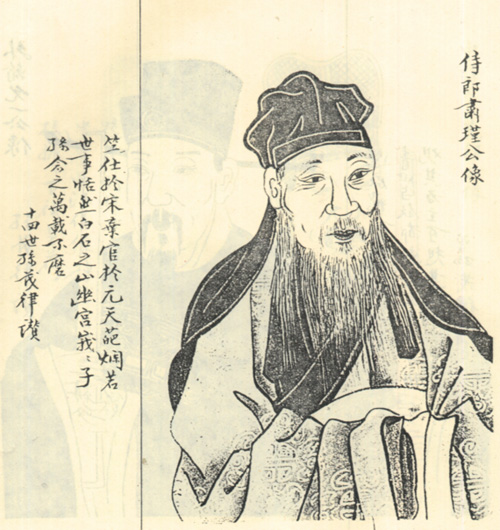 侍郎肅瑾公像
仕於宋棄官於元天葩烟若
世事恬然白石之山幽宫峩〻子
孫念之萬載不磨
十四世孫茂律讚